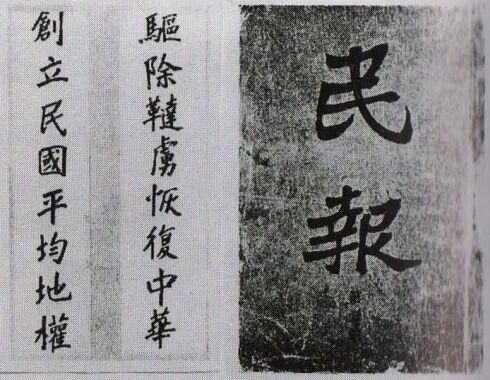 驅除韃虜恢復中華
創立民國平均地權
民報